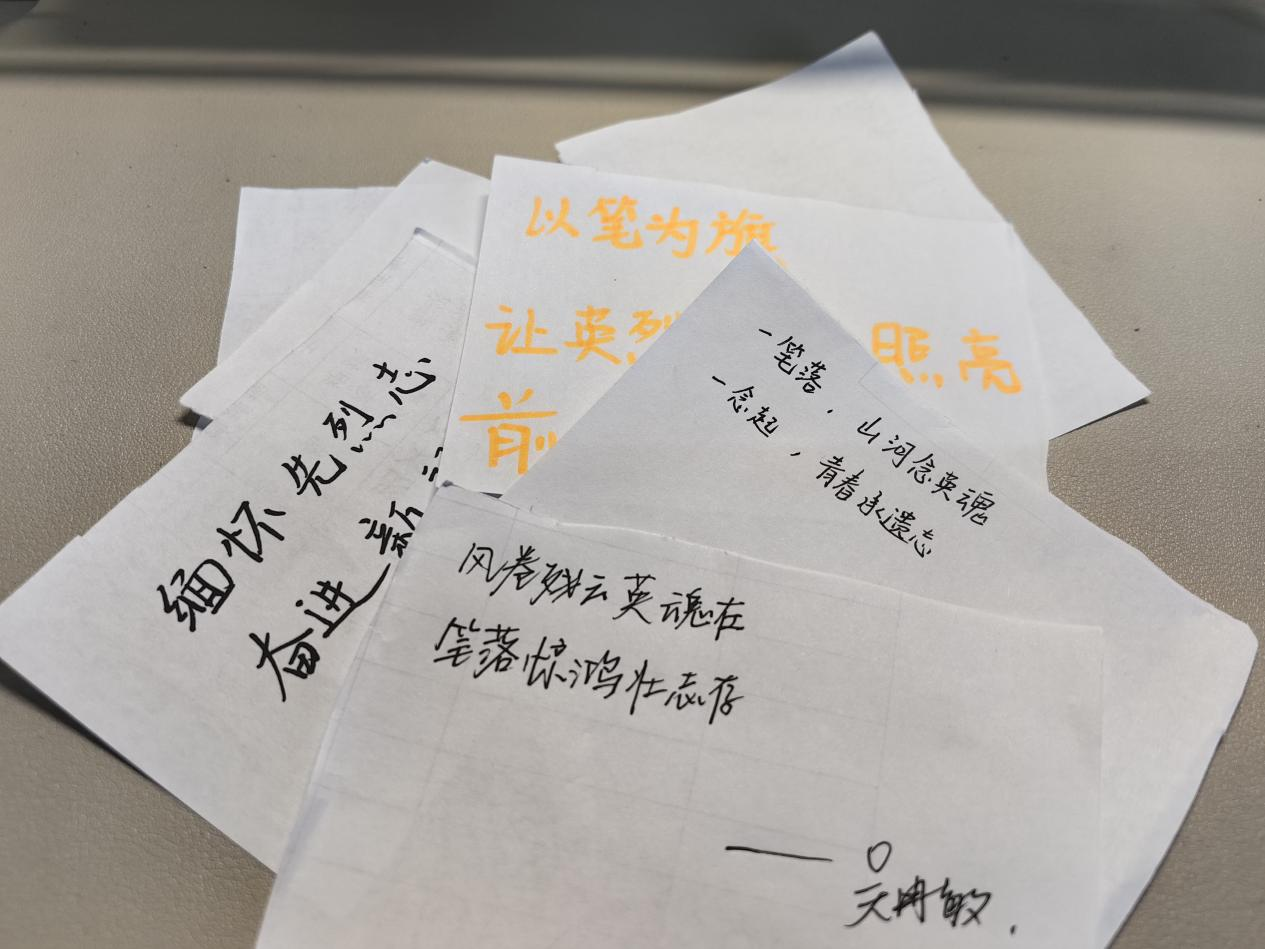 以笔为旗
让英烈 照亮
前
一笔落，山河念英魂
一念起，青春承遗志
缅怀先烈志
奋进新
风卷残云英魂在
笔落惊鸿壮志存
——吴冉敏.